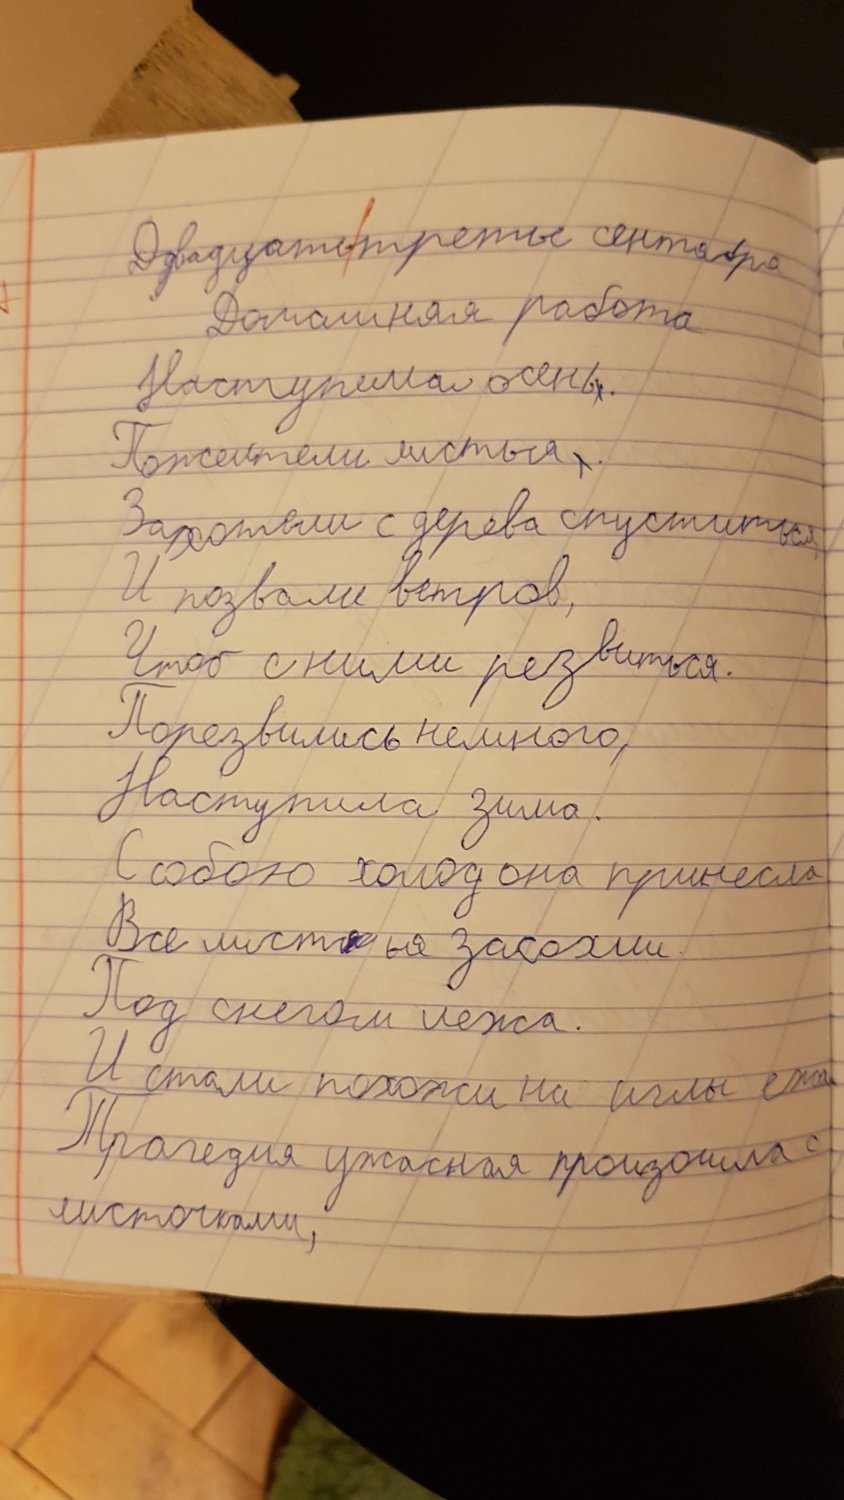 Двадцать третье сентября
Домашняя работа
Наступила осень.
Пожелтели листья.
Захотели с дерева спуститься,
И позвали ветров,
Чтоб с ними резвиться.
Порезвились немного,
Наступила зима.
С собою холод она принесла
Все листья засохли.
Под снегом лежа.
И стали похожи на иглы ежа
Трагедия ужасная произошла с
листочками,